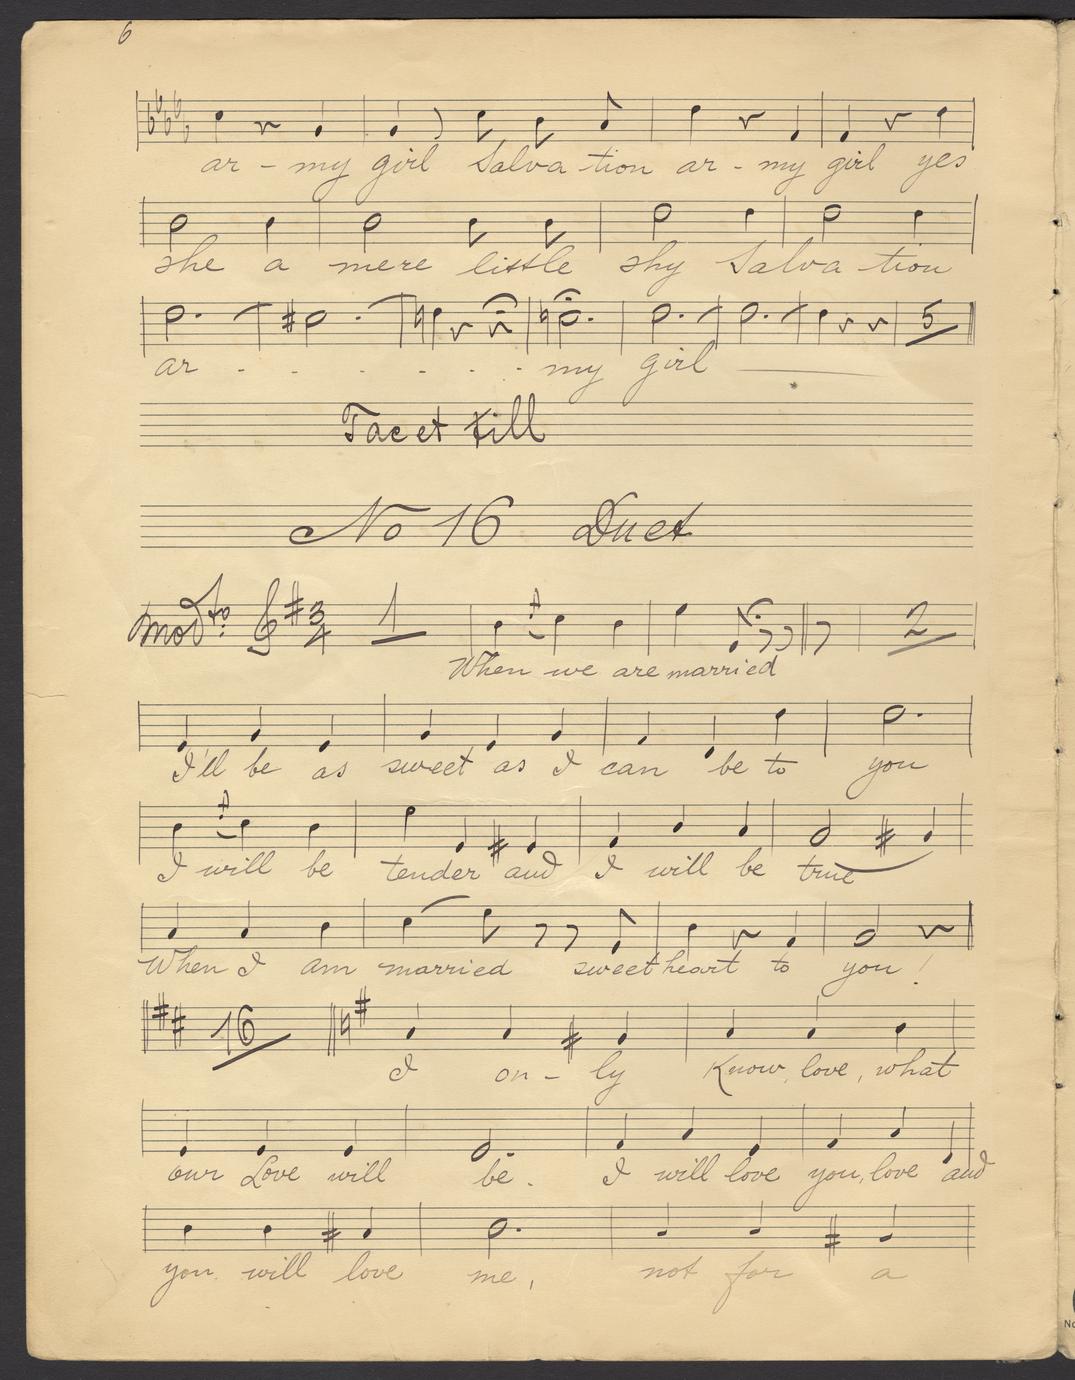 6
ar - my girl Salva - tion ar - my girl yes
she a mere little shy Salva - tion
5
ar - - - - - - my girl
Tacet till
No 16 Duet
Modto 3 4 1 2
When we are married
I'll be as sweet as I can be to you
I will be tender and I will be true
When I am married sweetheart to you!
16
I on - ly Know, love, what
our Love will be. I will love you, love and
you will love me, not for a
No